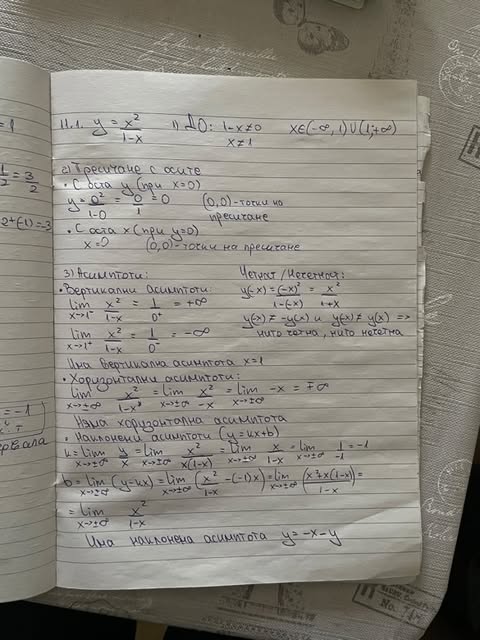 = 1
1/2 = 3/2
2+(-1)=-3
= -1
11.1. y = x²/(1-x) 1) ДО: 1-x≠0 x∈(-∞,1)∪(1;+∞)
x≠1
2) Пресичане с осите
• С оста y (при x=0)
y = 0²/(1-0) = 0/1 = 0 (0,0)-точки на
пресичане
• С оста x (при y=0)
x=0 (0,0)-точки на пресичане
3) Асимптоти:
• Вертикални асимптоти:
lim x→1⁻ x²/(1-x) = 1/0⁺ = +∞
lim x→1⁺ x²/(1-x) = 1/0⁻ = -∞
Има вертикална асимптота x=1
Четна / Нечетна:
y(-x) = (-x)²/(1-(-x)) = x²/(1+x)
y(-x) ≠ -y(x) и y(-x) ≠ y(x) =>
нито четна, нито нечетна
• Хоризонтални асимптоти:
lim x→±∞ x²/(1-x) = lim x→±∞ x²/-x = lim x→±∞ -x = ∓∞
Няма хоризонтална асимптота
• Наклонени асимптоти (y=kx+b)
k = lim x→±∞ y/x = lim x→±∞ x²/(x(1-x)) = lim x→±∞ x/(1-x) = lim x→±∞ 1/-1 = -1
b = lim x→±∞ (y-kx) = lim x→±∞ (x²/(1-x) - (-1)x) = lim x→±∞ (x²+x(1-x))/(1-x) =
= lim x→±∞ x²/(1-x)
Има наклонена асимптота y = -x-y